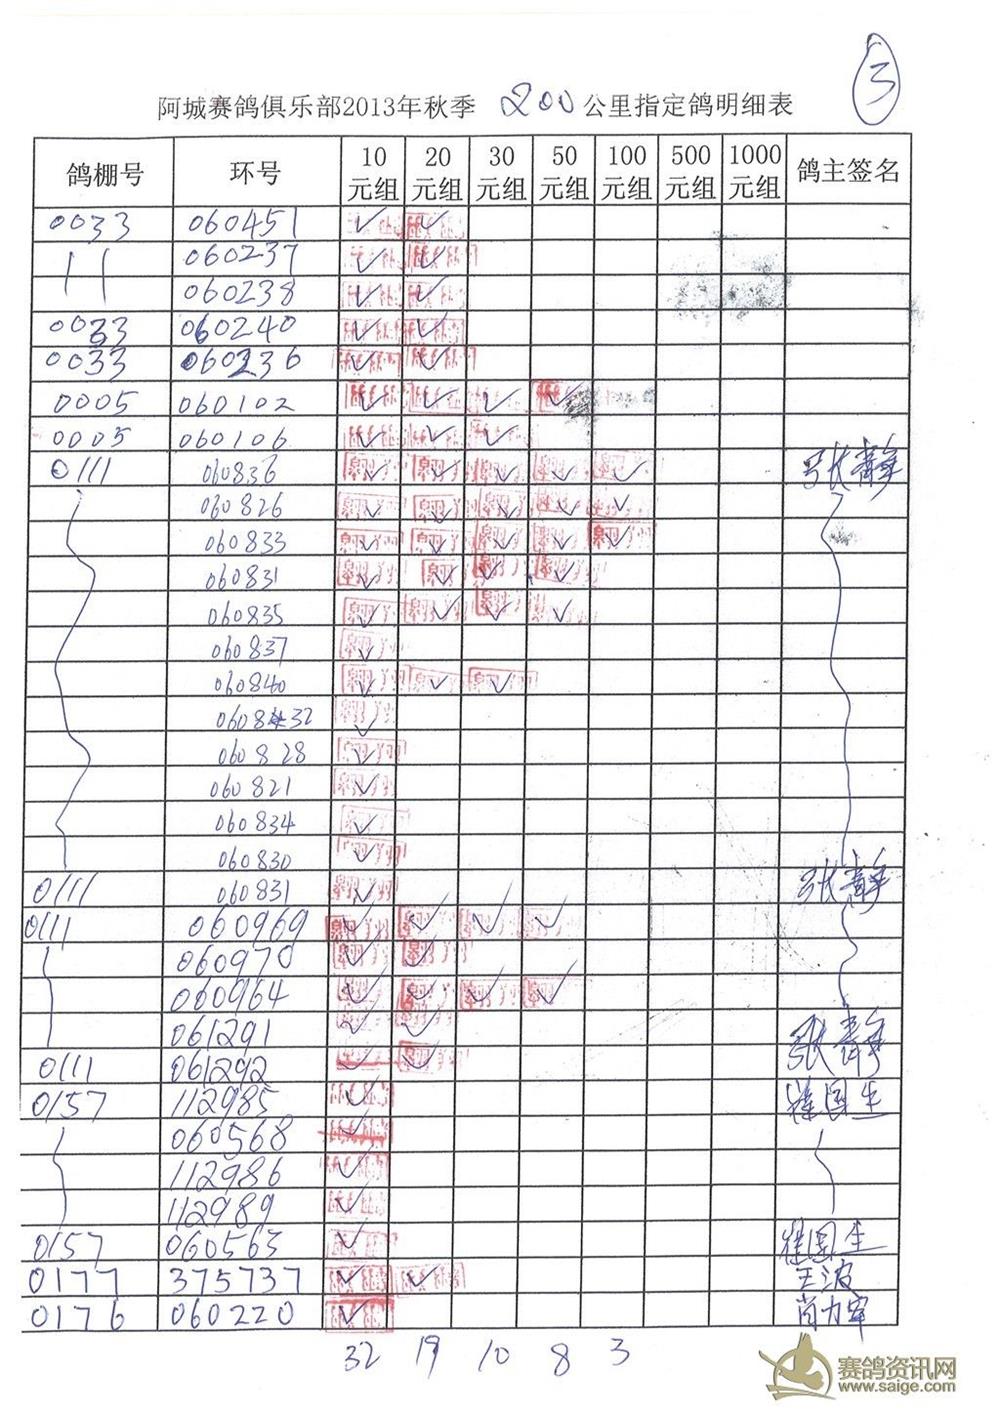 3
阿城赛鸽俱乐部2013年秋季 200 公里指定鸽明细表
鸽棚号 环号 10元组 20元组 30元组 50元组 100元组 500元组 1000元组 鸽主签名
0033 060451 ✓ ✓
11 060237 ✓ ✓
060238 ✓ ✓
0033 060240 ✓ ✓
0033 060236 ✓ ✓
0005 060102 ✓ ✓ ✓ ✓
0005 060106 ✓ ✓ ✓
0111 060836 ✓ ✓ ✓ ✓ ✓ 张静
060826 ✓ ✓ ✓ ✓ ✓
060833 ✓ ✓ ✓ ✓ ✓
060831 ✓ ✓ ✓ ✓
060835 ✓ ✓ ✓ ✓
060837 ✓
060840 ✓ ✓ ✓
060832 ✓
060828 ✓
060821 ✓
060834 ✓
060830 ✓
0111 060831 ✓ 张静
0111 060969 ✓ ✓ ✓ ✓
060970 ✓ ✓
060964 ✓ ✓ ✓ ✓
061291 ✓ ✓
0111 061292 ✓ ✓ 张静
0157 112985 ✓ 国生
060568 ✓
112986 ✓
112989 ✓
0157 060563 ✓ 国生
0177 375737 ✓ ✓ 王波
0176 060220 ✓ 肖力军
32 19 10 8 3
赛鸽资讯网
www.saige.com